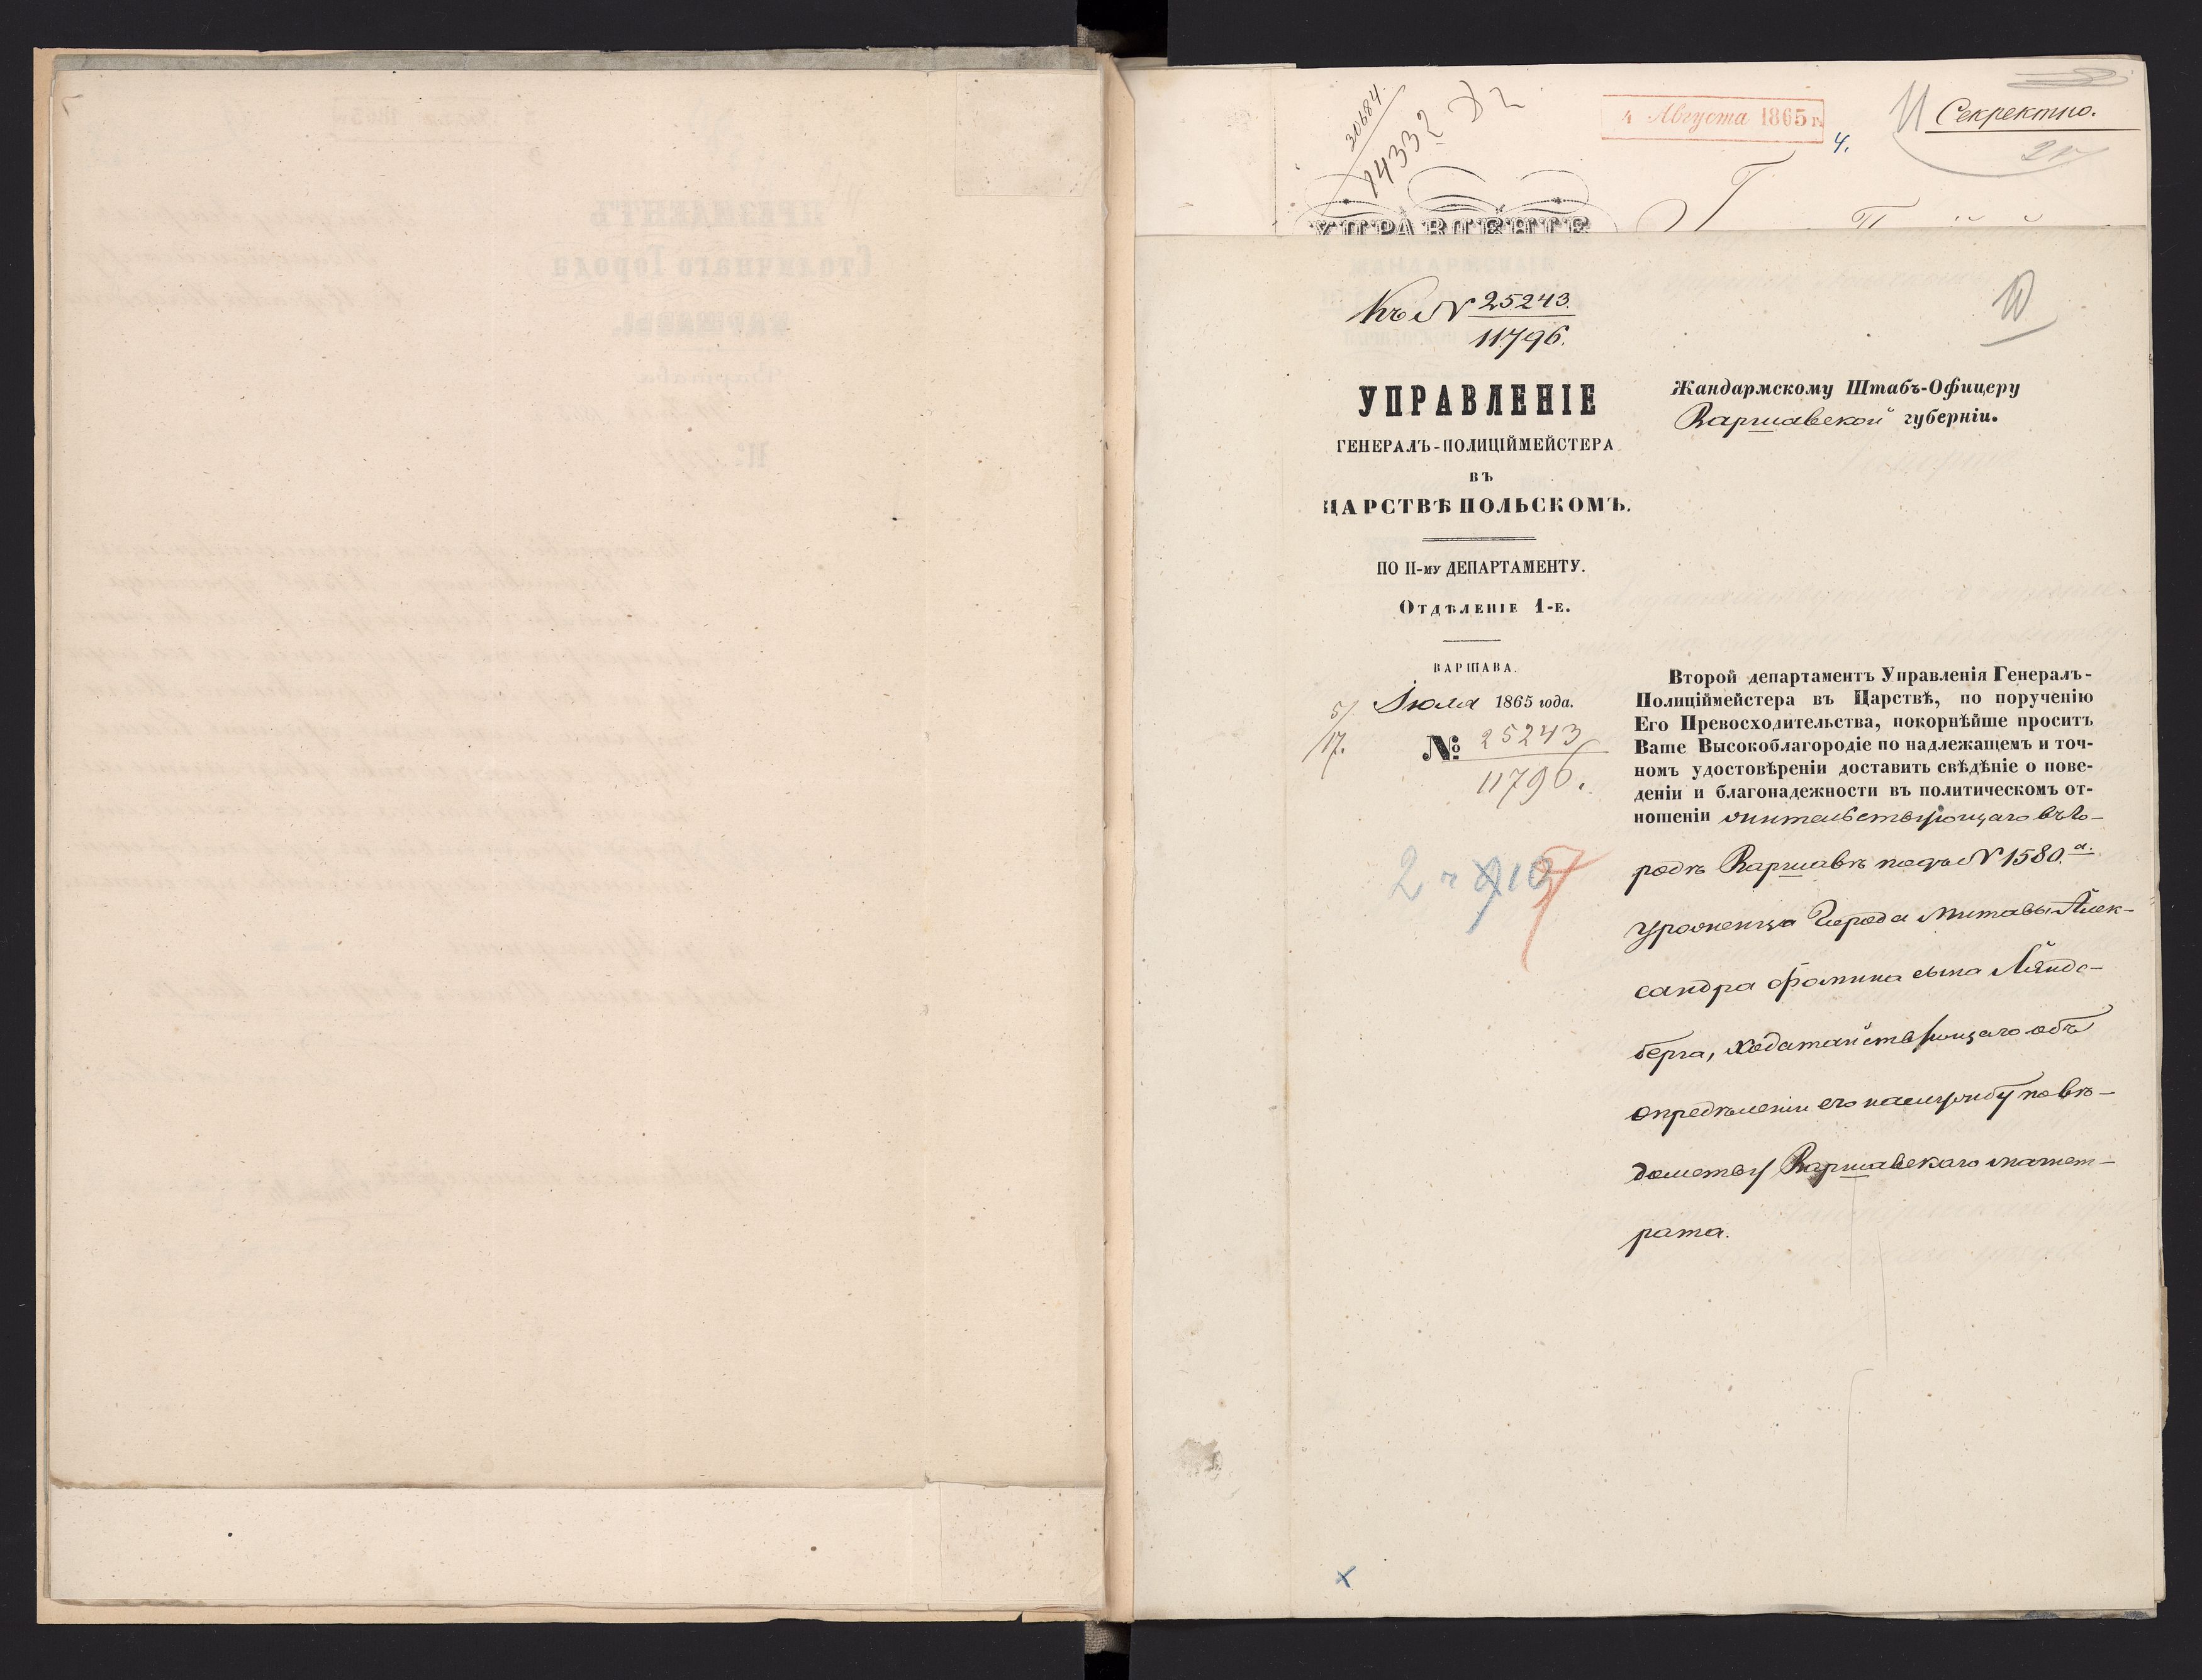 30684
14332
4 Августа 1865 г.
4.
Секретно.
УПРАВЛЕНІЕ
Къ № 25243
11796.
УПРАВЛЕНІЕ
ГЕНЕРАЛЪ-ПОЛИЦІЙМЕЙСТЕРА
ВЪ
ЦАРСТВѢ ПОЛЬСКОМЪ.
ПО II-му ДЕПАРТАМЕНТУ.
Отдѣленіе 1-е.
ВАРШАВА.
5/17. Іюля 1865 года.
№ 25243
11796.
Жандармскому Штабъ-Офицеру
Варшавской губерніи.
Второй департаментъ Управленія Генералъ-
Полиціймейстера въ Царствѣ, по порученію
Его Превосходительства, покорнѣйше проситъ
Ваше Высокоблагородіе по надлежащемъ и точ-
номъ удостовѣреніи доставить свѣдѣніе о пове-
деніи и благонадежности въ политическомъ от-
ношеніи жительствующаго въ го-
родѣ Варшавѣ подъ № 1580.а.
уроженца города Митавы Алек-
сандра Фомина сына Ляндс-
берга, ходатайствующаго объ
опредѣленіи его на службу по вѣ-
домству Варшавскаго магист-
рата.